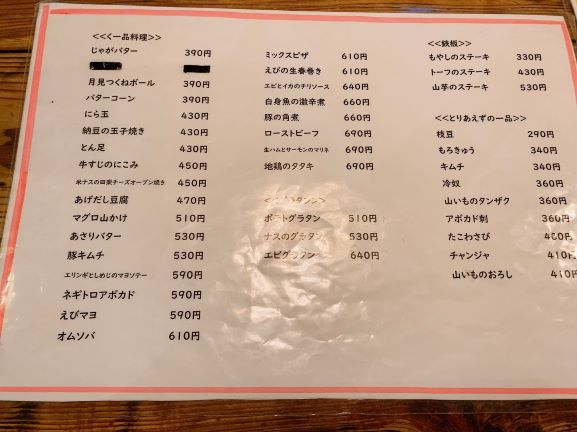 <<く一品料理>>
じゃがバター 390円
月見つくねボール 390円
バターコーン 390円
にら玉 430円
納豆の玉子焼き 430円
とん足 430円
牛すじのにこみ 450円
米ナスの田楽チーズオーブン焼き 450円
あげだし豆腐 470円
マグロ山かけ 510円
あさりバター 530円
豚キムチ 530円
エリンギとしめじのマヨソテー 590円
ネギトロアボカド 590円
えびマヨ 590円
オムソバ 610円
ミックスピザ 610円
えびの生春巻き 610円
エビとイカのチリソース 640円
白身魚の激辛煮 660円
豚の角煮 660円
ローストビーフ 690円
生ハムとサーモンのマリネ 690円
地鶏のタタキ 690円
ポテトグラタン 510円
ナスのグラタン 530円
エビグラタン 640円
<<鉄板>>
もやしのステーキ 330円
トーフのステーキ 430円
山芋のステーキ 530円
<<とりあえずの一品>>
枝豆 290円
もろきゅう 340円
キムチ 340円
冷奴 360円
山いものタンザク 360円
アボカド刺 360円
たこわさび 円
チャンジャ 410円
山いものおろし 410円